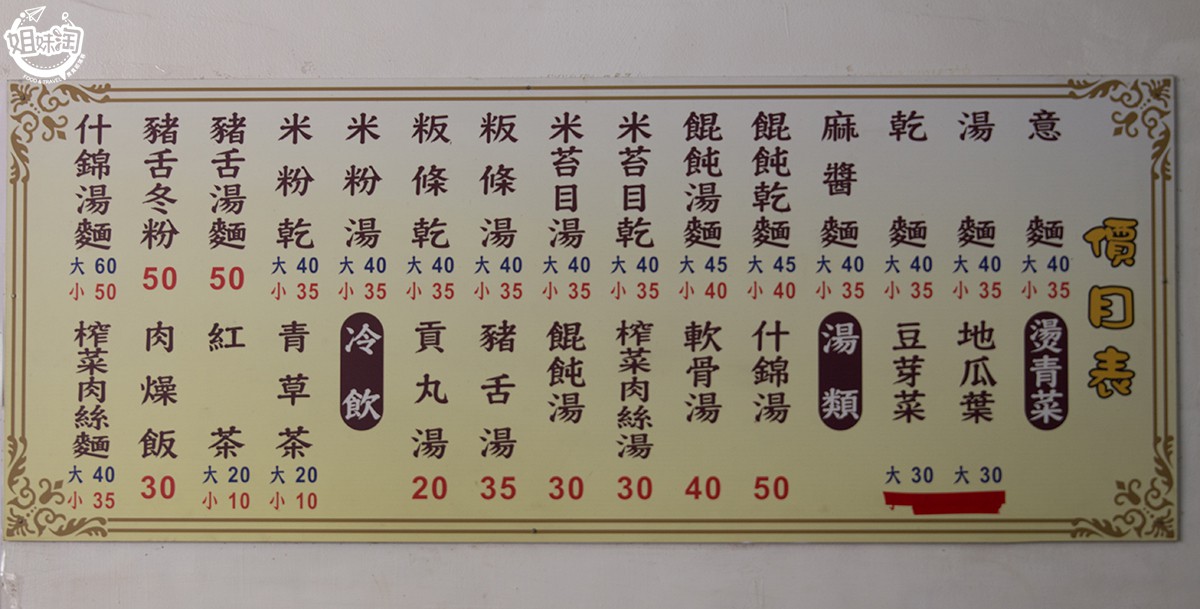 姐妹淘
FOOD & TRAVEL
價目表
意麵 大 40 小 35
湯麵 大 40 小 35
乾麵 大 40 小 35
麻醬麵 大 40 小 35
餛飩乾麵 大 45 小 40
餛飩湯麵 大 45 小 40
米苔目乾 大 40 小 35
米苔目湯 大 40 小 35
粄條湯 大 40 小 35
粄條乾 大 40 小 35
米粉湯 大 40 小 35
米粉乾 大 40 小 35
豬舌湯麵 50
豬舌冬粉 50
什錦湯麵 大 60 小 50
燙青菜
地瓜葉 大 30
豆芽菜 大 30
湯類
什錦湯 50
軟骨湯 40
榨菜肉絲湯 30
餛飩湯 30
豬舌湯 35
貢丸湯 20
冷飲
青草茶 大 20 小 10
紅茶 大 20 小 10
肉燥飯 30
榨菜肉絲麵 大 40 小 35